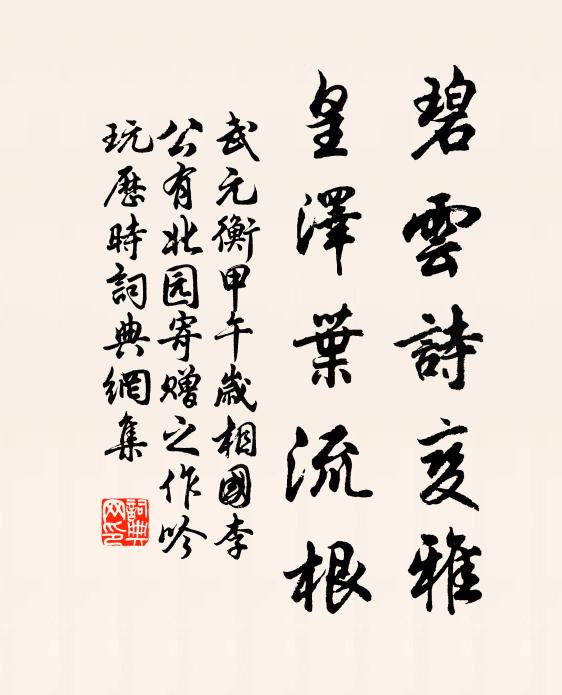 碧雲詩变雅
皇澤葉流根
武元衡甲午歲相國李
公有北园寄贈之作吟
玩歷時詞典網集
詞典网印